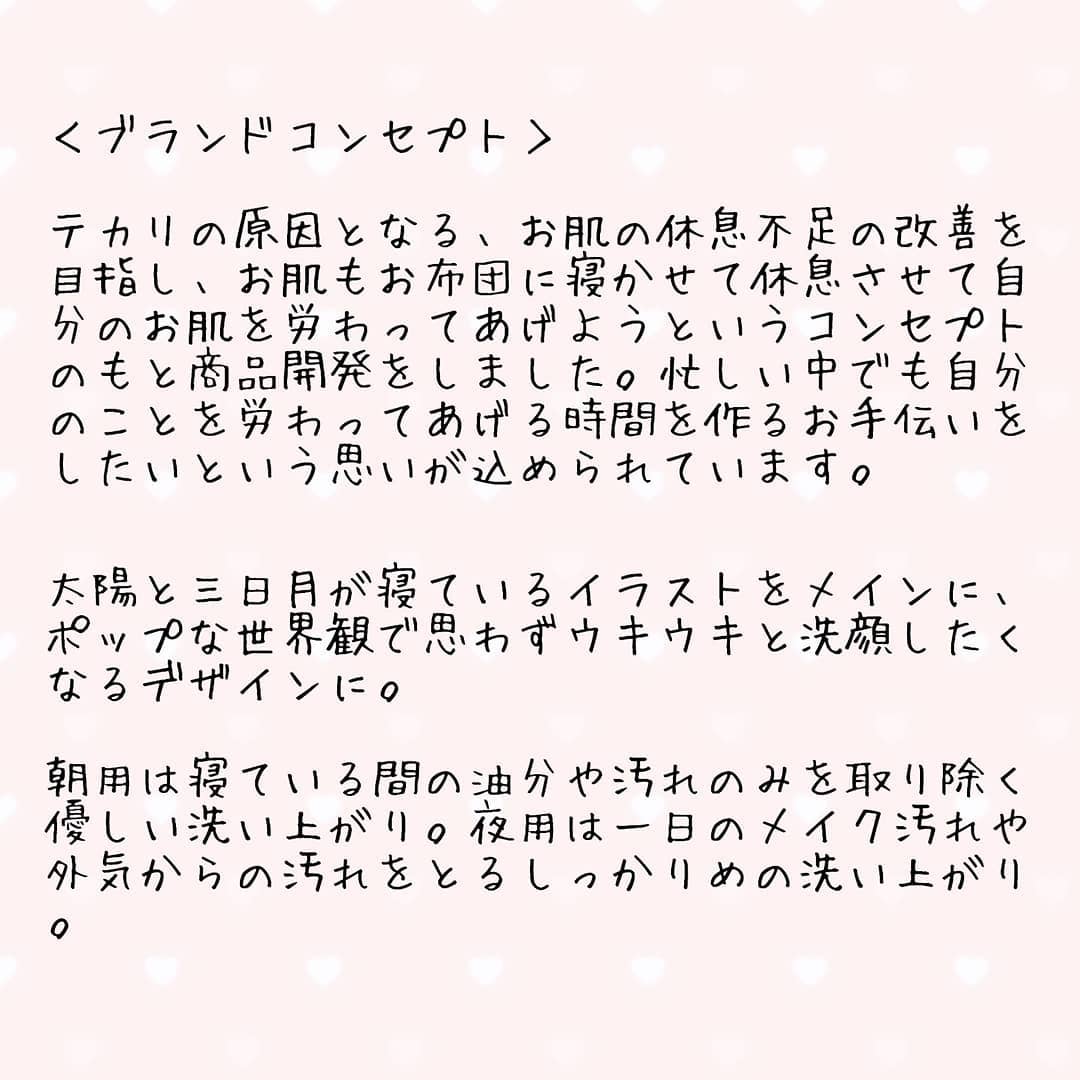 <ブランドコンセプト>
テカリの原因となる、お肌の休息不足の改善を
目指し、お肌もお布団に寝かせて休息させて自
分のお肌を労わってあげようというコンセプト
のもと商品開発をしました。忙しい中でも自分
のことを労わってあげる時間を作るお手伝いを
したいという思いが込められています。
太陽と三日月が寝ているイラストをメインに、
ポップな世界観で思わずウキウキと洗顔したく
なるデザインに。
朝用は寝ている間の油分や汚れのみを取り除く
優しい洗い上がり。夜用は一日のメイク汚れや
外気からの汚れをとるしっかりめの洗い上がり
。